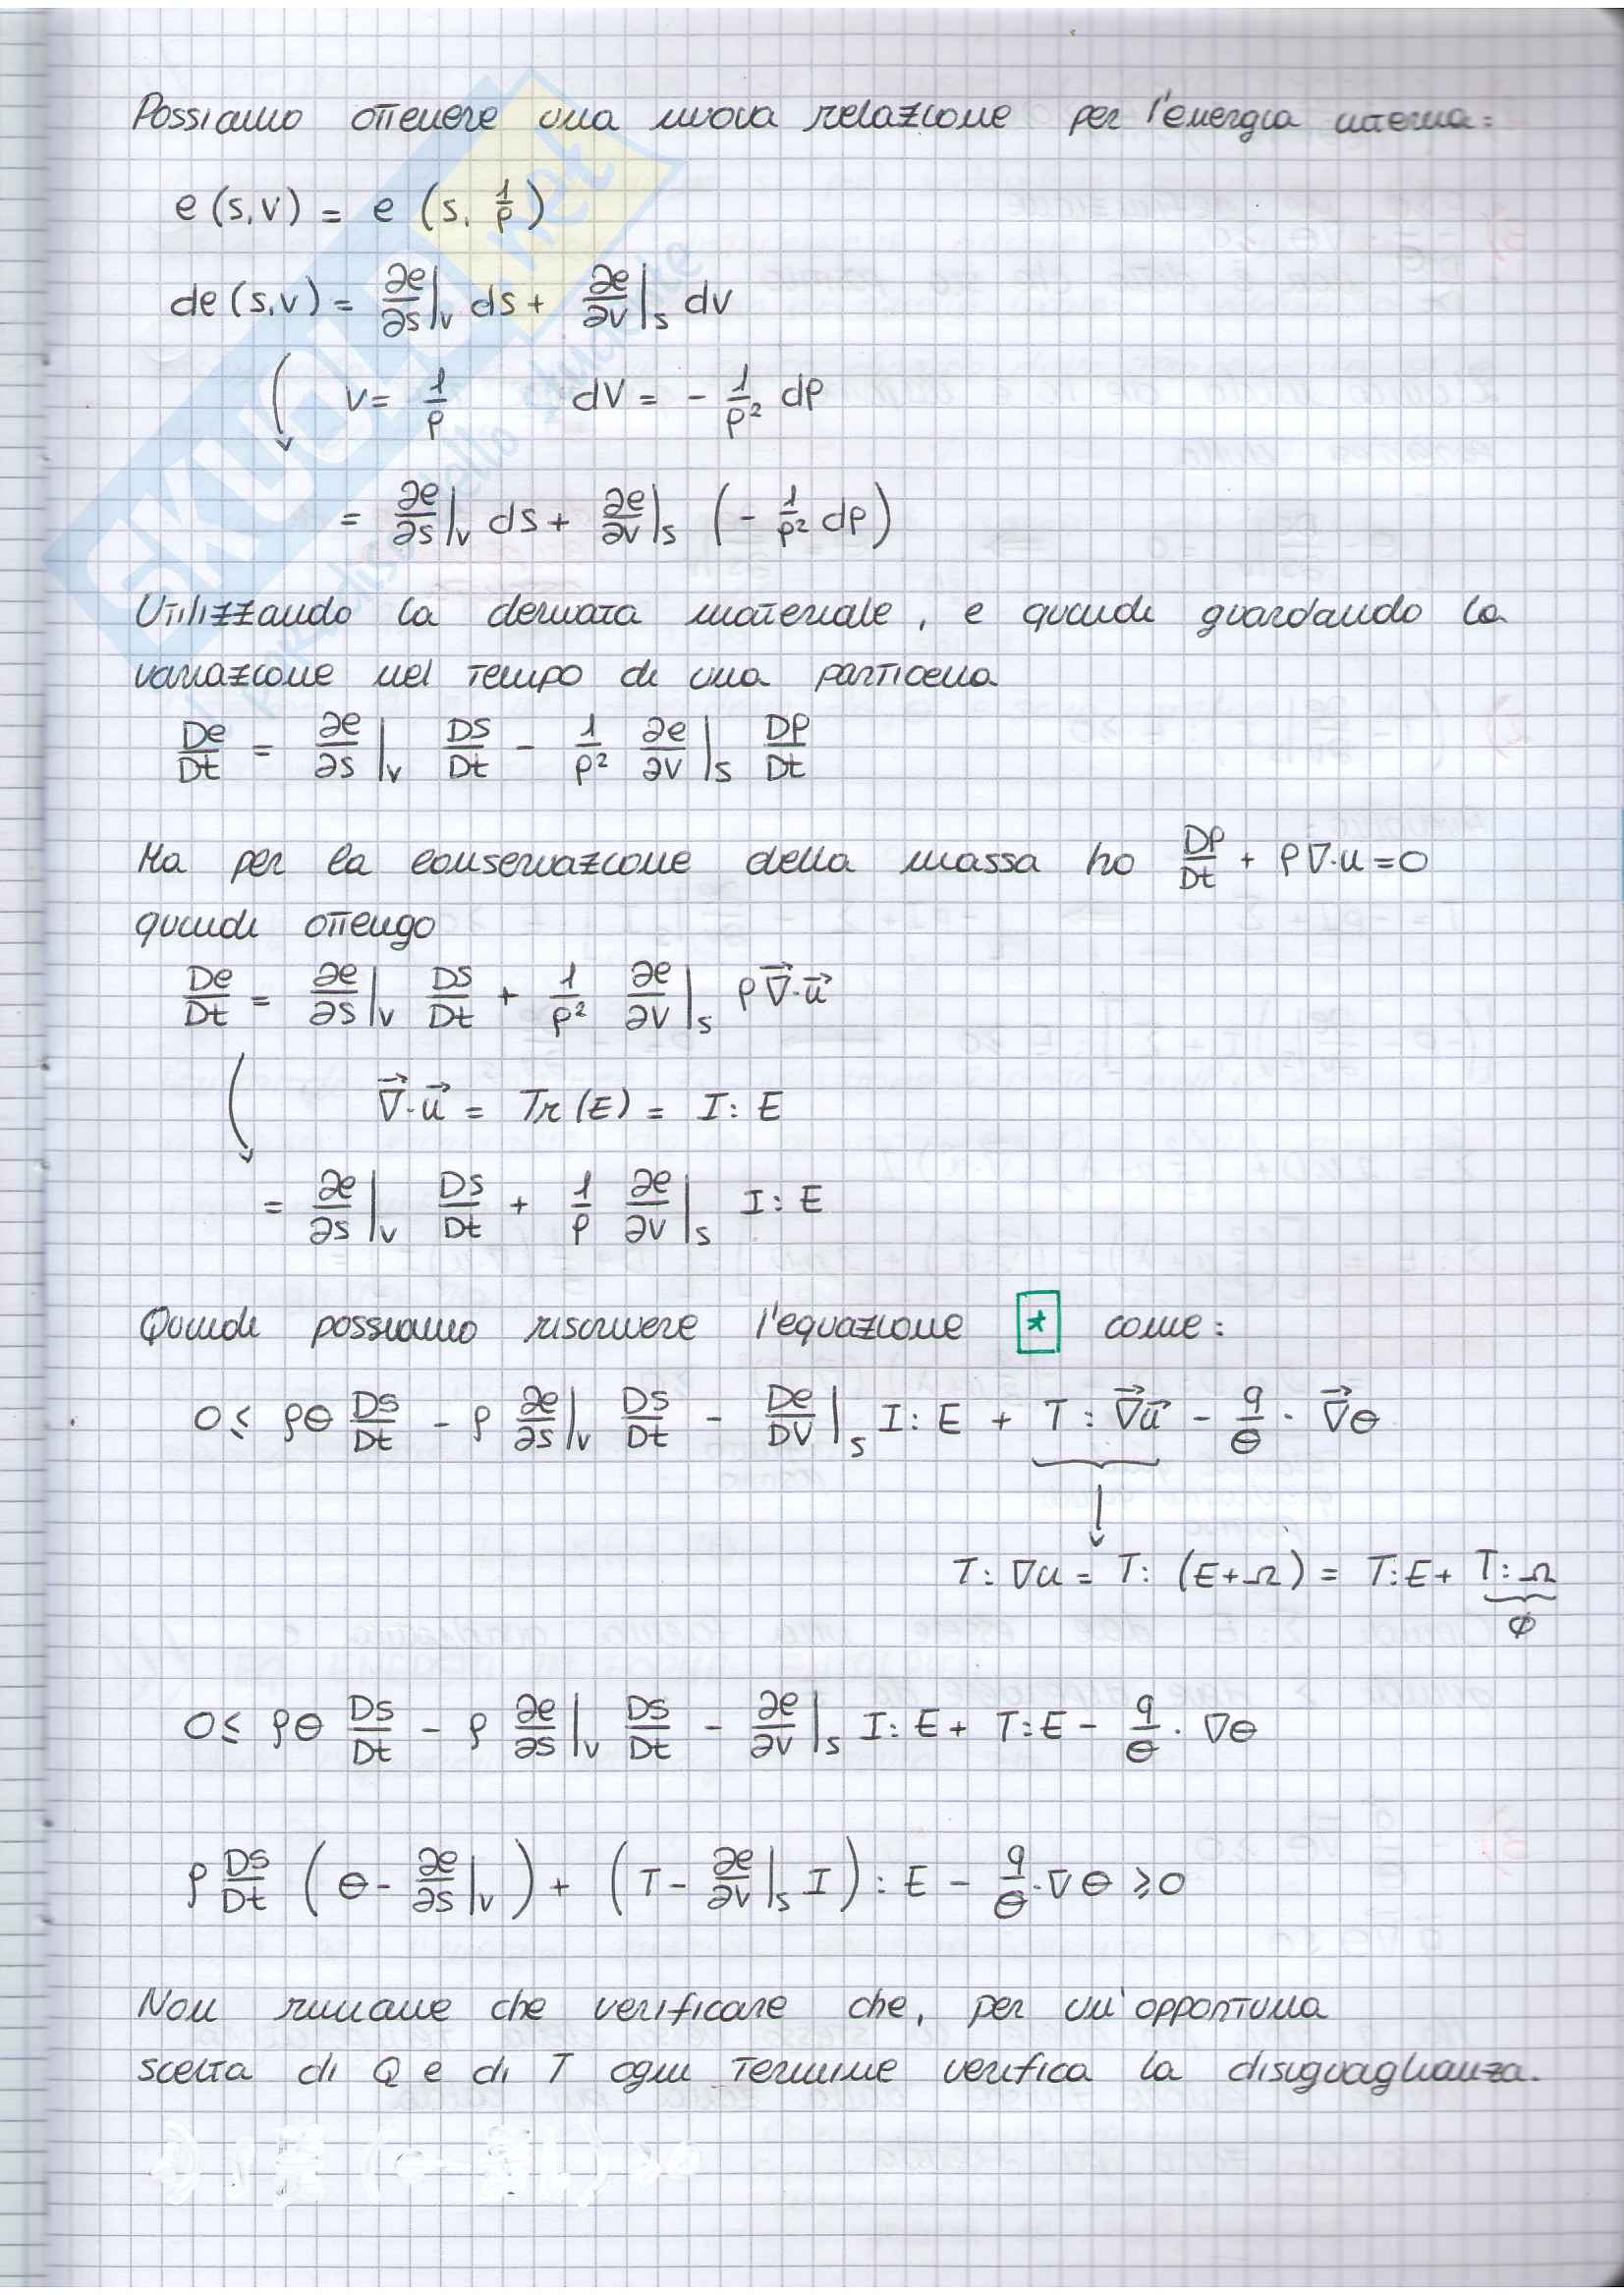 Possiamo ottenere una nuova relazione per l'energia interna:
e (s,v) = e (s, 1/ρ)
de (s,v) = ∂e/∂s|v ds + ∂e/∂v|s dv
v = 1/ρ dv = - 1/ρ² dρ
= ∂e/∂s|v ds + ∂e/∂v|s (- 1/ρ² dρ)
Utilizzando la derivata materiale, e quindi guardando la
variazione nel tempo di una particella
De/Dt = ∂e/∂s|v Ds/Dt - 1/ρ² ∂e/∂v|s Dρ/Dt
Ma per la conservazione della massa ho Dρ/Dt + ρ∇·u = 0
quindi ottengo
De/Dt = ∂e/∂s|v Ds/Dt + 1/ρ² ∂e/∂v|s ρ∇⃗·u⃗
∇⃗·u⃗ = Tr(E) = I:E
= ∂e/∂s|v Ds/Dt + 1/ρ ∂e/∂v|s I:E
Quindi possiamo riscrivere l'equazione * come:
0 ≤ ρθ Ds/Dt - ρ ∂e/∂s|v Ds/Dt - De/Dv|s I:E + T:∇⃗u⃗ - q/θ · ∇⃗θ
T:∇u = T:(E+Ω) = T:E + T:Ω
∅
0 ≤ ρθ Ds/Dt - ρ ∂e/∂s|v Ds/Dt - ∂e/∂v|s I:E + T:E - q/θ · ∇θ
ρ Ds/Dt (θ - ∂e/∂s|v) + (T - ∂e/∂v|s I):E - q/θ · ∇θ ≥ 0
Non rimane che verificare che, per un'opportuna
scelta di Q e di T ogni termine verifica la disuguaglianza.
SKUOLA.net